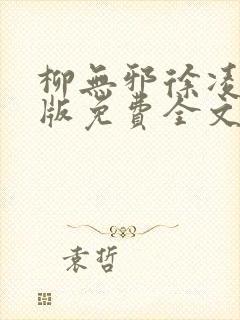 柳無邪徐凌
版免費全文
袁哲